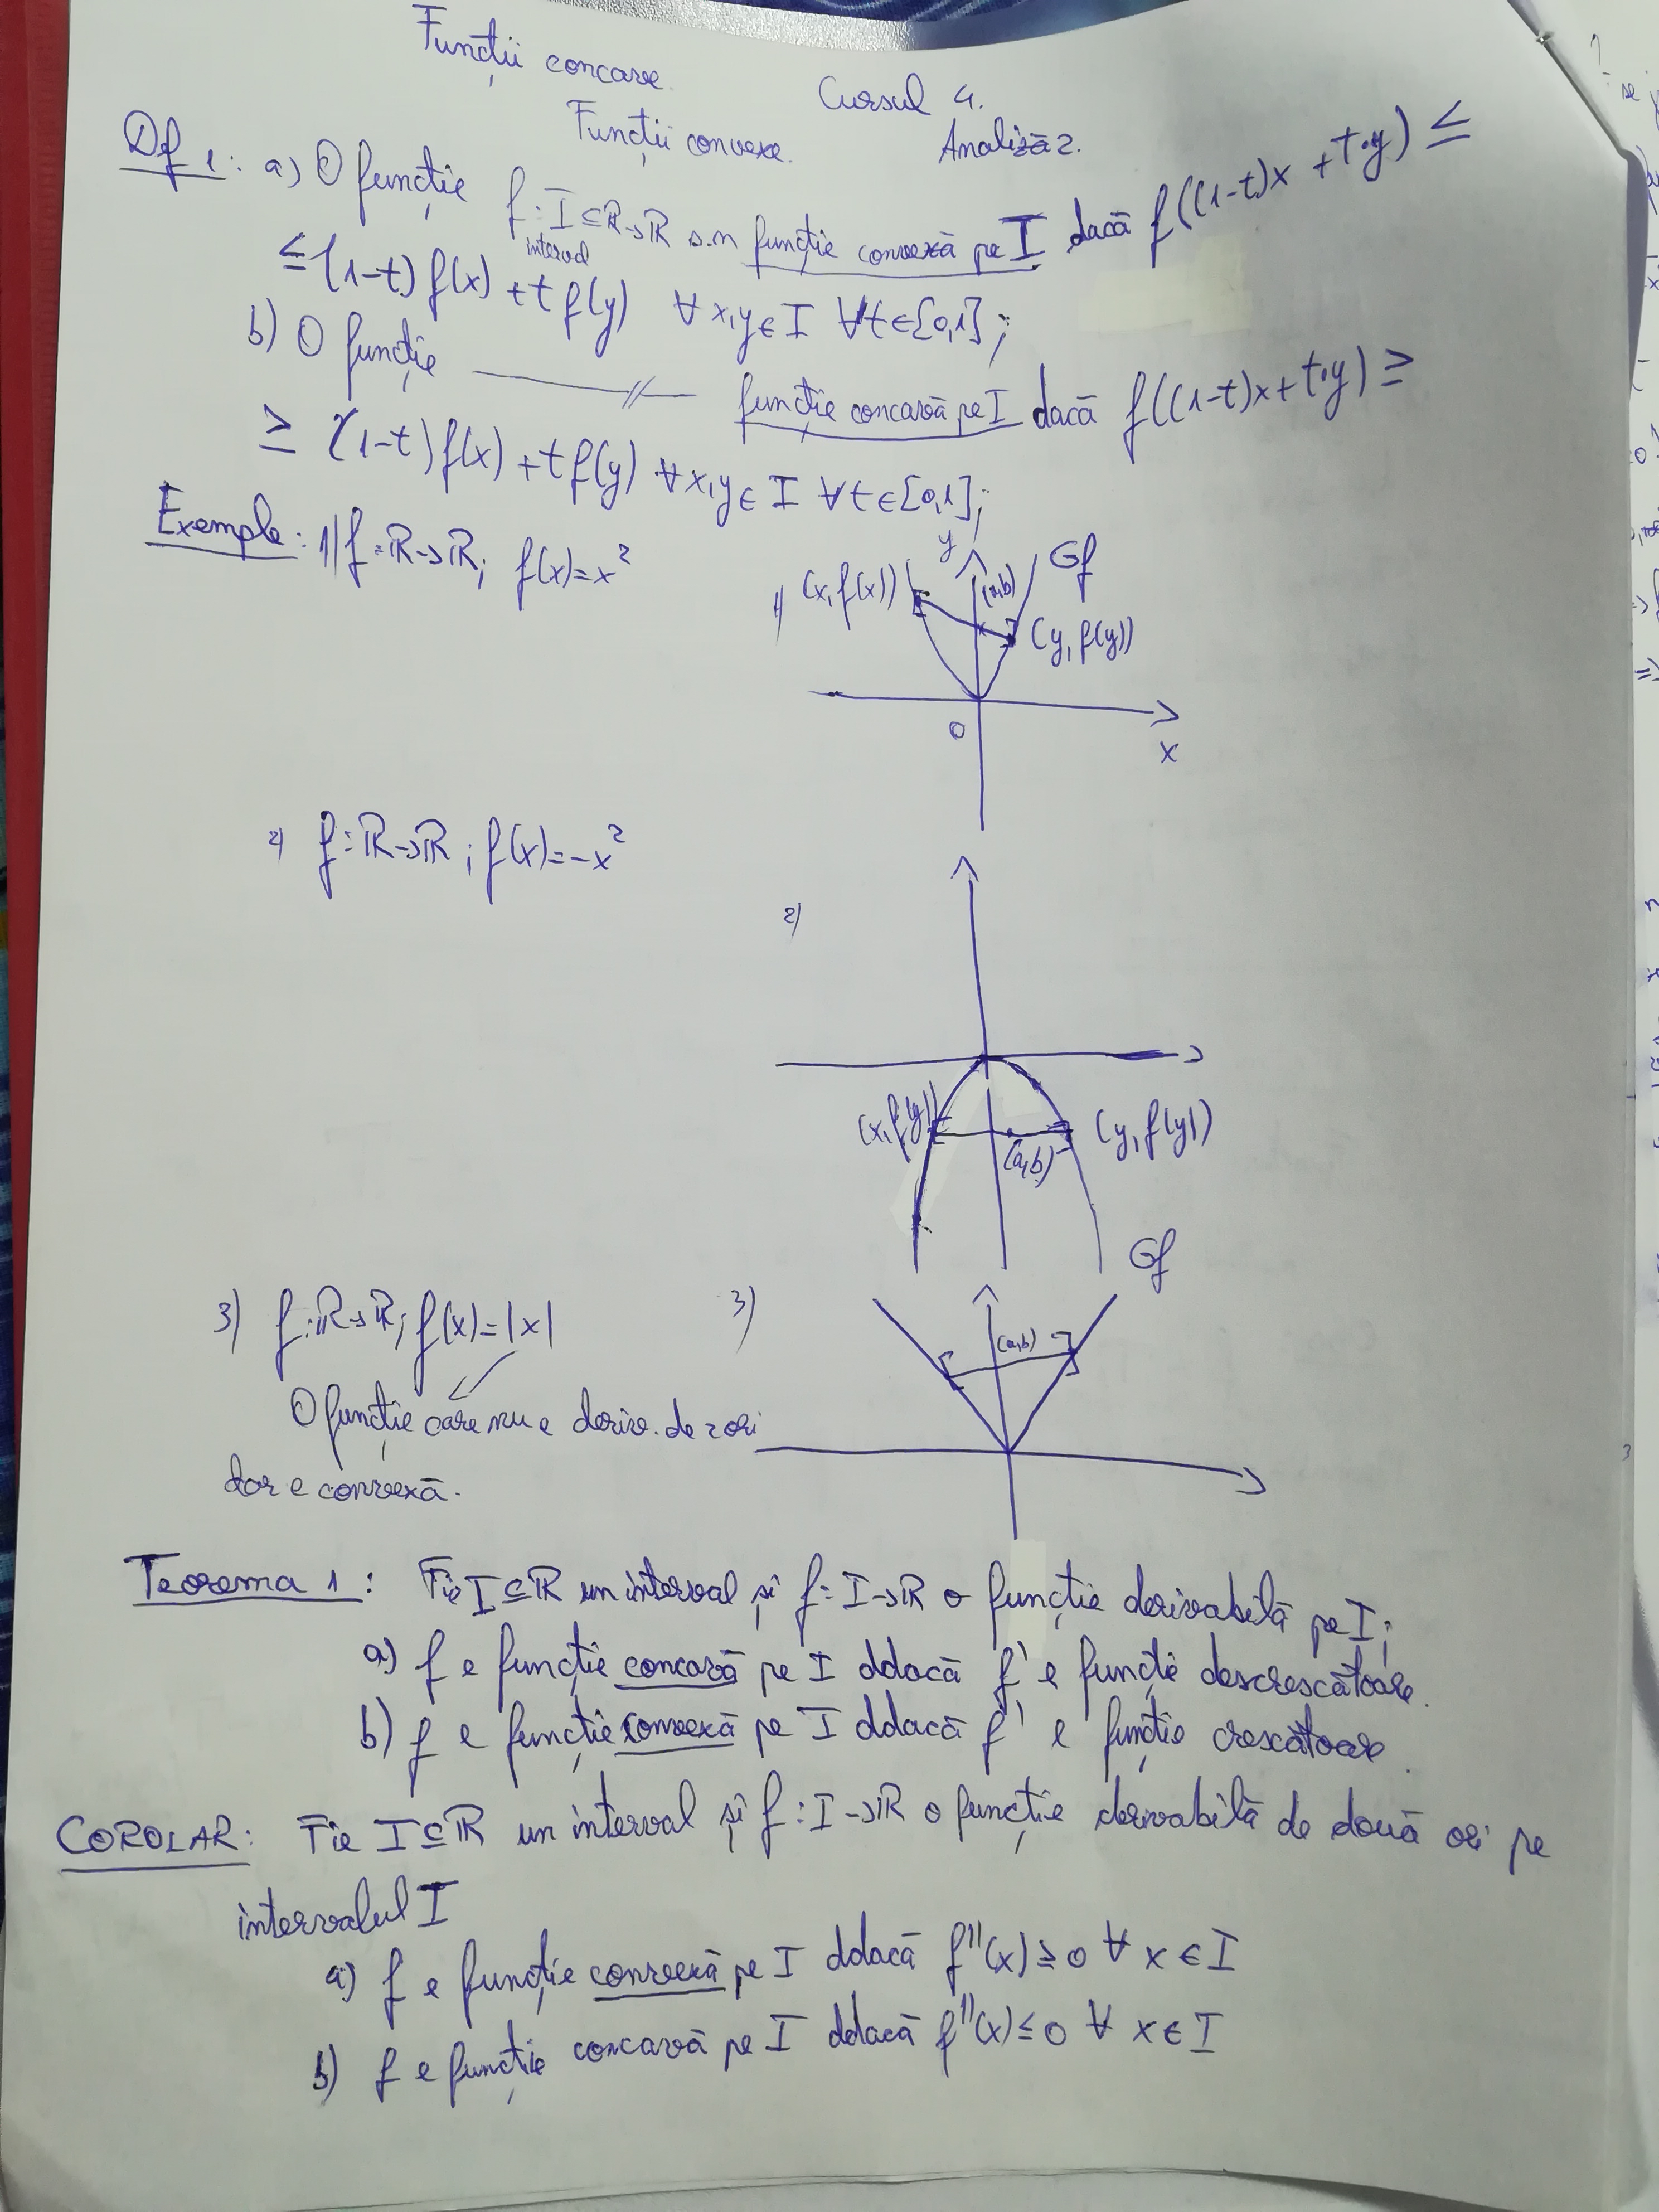 Funcții concave.
Cursul 4.
Funcții convexe.
Analiză 2.
Df 1: a) O funcție f: I ⊆ ℝ → ℝ s.n funcție convexă pe I dacă f((1-t)x + t·y) ≤
interval
≤ (1-t) f(x) + t f(y) ∀ x,y ∈ I ∀ t ∈ [0,1];
b) O funcție —//— funcție concavă pe I dacă f((1-t)x + t·y) ≥
≥ (1-t) f(x) + t f(y) ∀ x,y ∈ I ∀ t ∈ [0,1];
Exemple: 1) f: ℝ → ℝ; f(x) = x²
1) (x, f(x)) y (a,b) Gf
(y, f(y))
0 x
2) f: ℝ → ℝ; f(x) = -x²
2)
(x, f(y)) (a,b) (y, f(y))
Gf
3) f: ℝ → ℝ; f(x) = |x|
3) (a,b)
O funcție care nu e deriv. de 2 ori
dar e convexă.
Teorema 1: Fie I ⊆ ℝ un interval și f: I → ℝ o funcție derivabilă pe I;
a) f e funcție concavă pe I ddacă f' e funcție descrescătoare.
b) f e funcție convexă pe I ddacă f' e funcție crescătoare.
COROLAR: Fie I ⊆ ℝ un interval și f: I → ℝ o funcție derivabilă de două ori pe
intervalul I
a) f e funcție convexă pe I ddacă f''(x) ≥ 0 ∀ x ∈ I
b) f e funcție concavă pe I ddacă f''(x) ≤ 0 ∀ x ∈ I